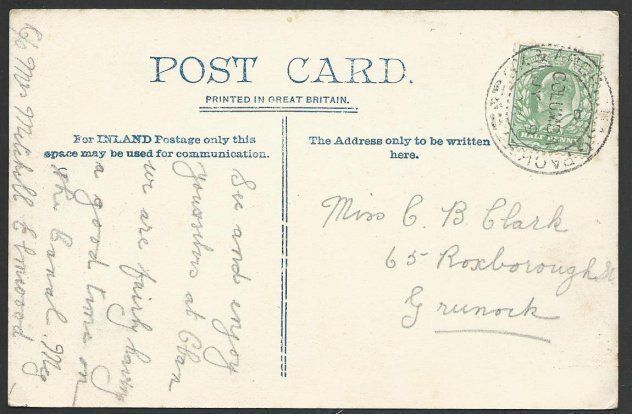 POST CARD.
PRINTED IN GREAT BRITAIN.
For INLAND Postage only this
space may be used for communication.
The Address only to be written
here.
See and enjoy
yourselves at Clan
we are fairly having
a good time on
the Canal. Meg
c/o Mrs Mitchell
Miss C B Clark
65 Roxborough St
Grunock
HALF PENNY
COLUMBA